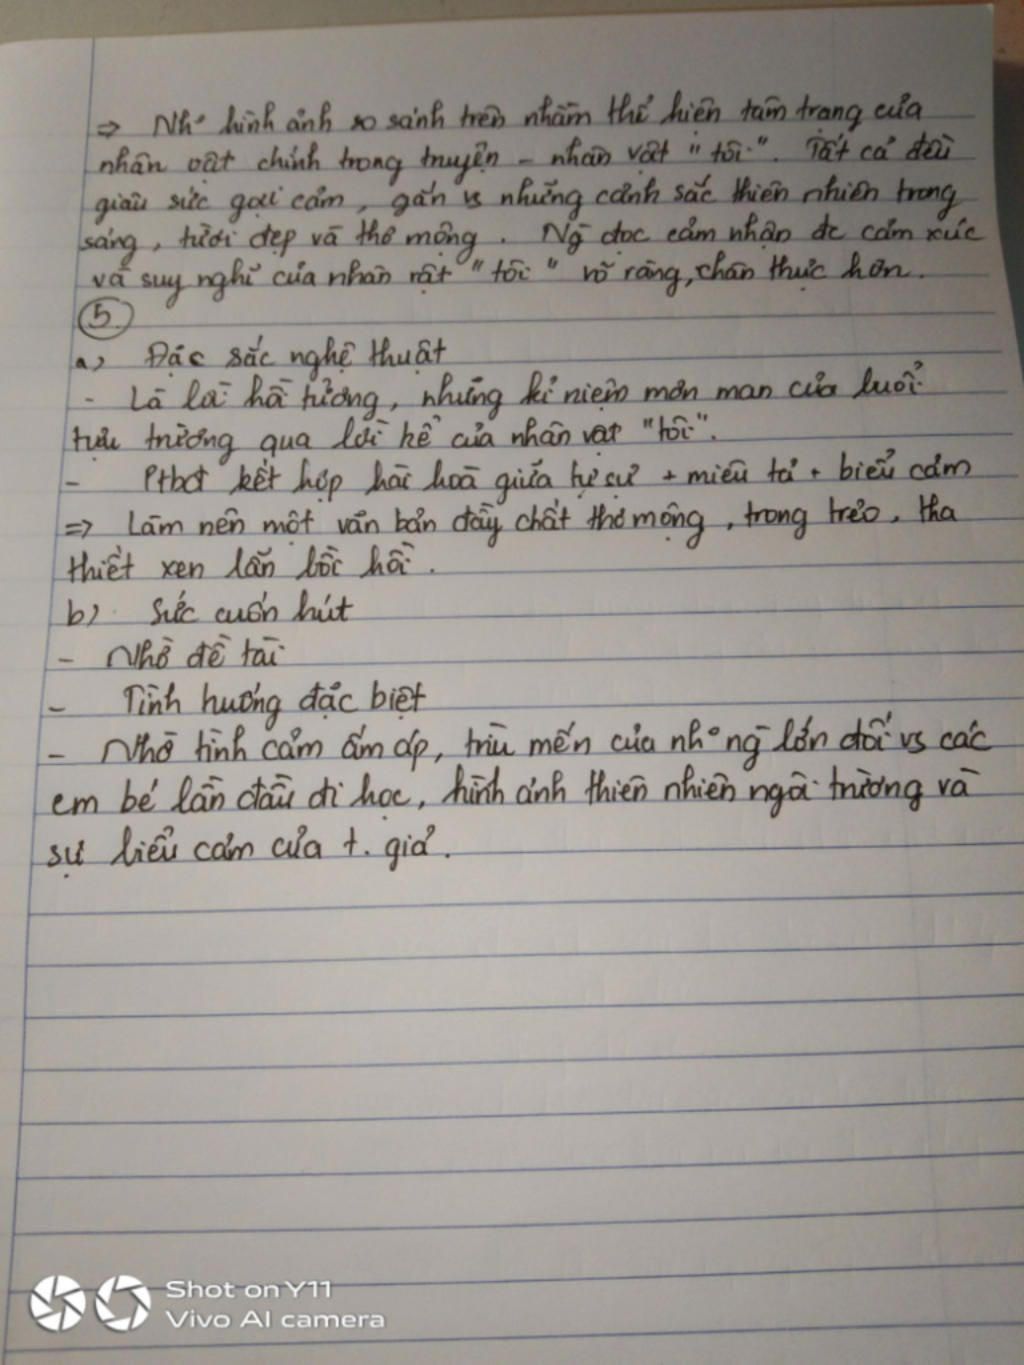 ⇒ Nh° hình ảnh so sánh trên nhằm thể hiện tâm trạng của
nhân vật chính trong truyện - nhân vật "tôi". Tất cả đều
giàu sức gợi cảm, gắn vs những cảnh sắc thiên nhiên trong
sáng, tươi đẹp và thơ mộng. Ng đọc cảm nhận đc cảm xúc
và suy nghĩ của nhân vật "tôi" rõ ràng, chân thực hơn.
5
a) Đặc sắc nghệ thuật
- Là lời hồi tưởng, những kỉ niệm mơn man của buổi
tựu trường qua lời kể của nhân vật "tôi".
- Ptbđ kết hợp hài hoà giữa tự sự + miêu tả + biểu cảm
=> Làm nên một văn bản đầy chất thơ mộng, trong trẻo, tha
thiết xen lẫn bồi hồi.
b) Sức cuốn hút
- Nhờ đề tài
- Tình huống đặc biệt
- Nhờ tình cảm ấm áp, trìu mến của nh° ng lớn đối vs các
em bé lần đầu đi học, hình ảnh thiên nhiên ngôi trường và
sự biểu cảm của t. giả.
Shot on Y11
Vivo AI camera